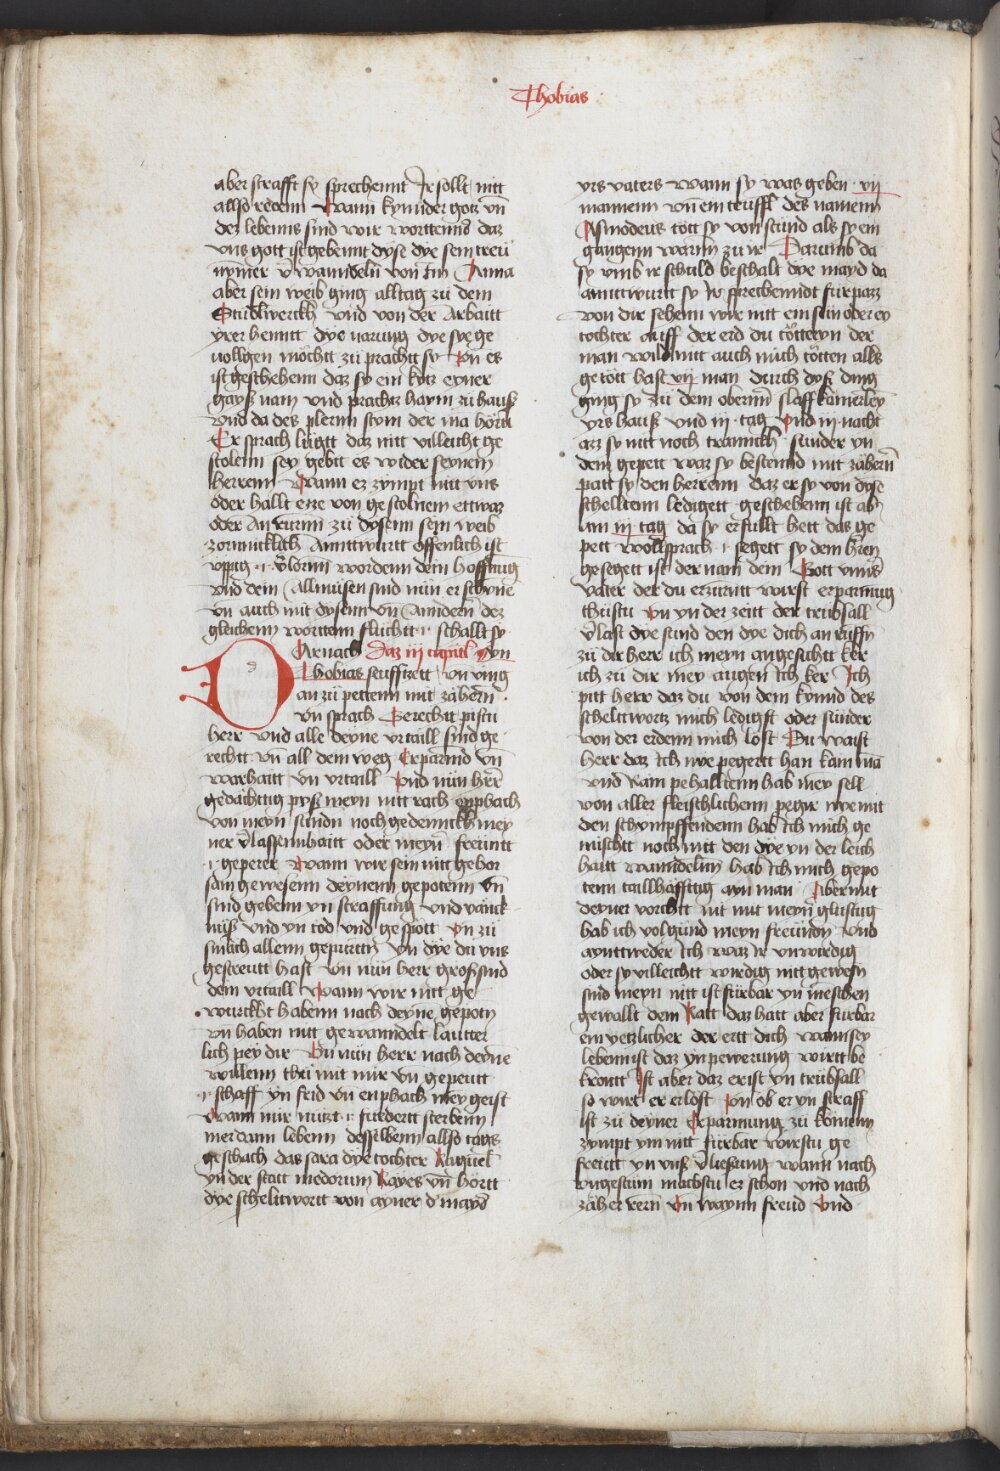 Thobias
aber strafft sy sprechennt Ir sollt nitt
allso redenn Wann kynnder gotz vn̄
des lebenns sind wir warttenns daz
vns gott ist gebennt dyse dye sein treü
nymer v̄wanndeln̄ von im Anna
aber sein weib ging alltag zü dem
Studlwerckh vnd von der Arbaitt
yrer henntt dye narung dye sye ge
vollgen möchtt zü prachtt sy Vn es
ist geschehenn daz sy ein kytz eyner
gayß nam vnd prachtz haym zü hauß
vnd da des plerrn stym der ma hörtt
Er sprach lügtt daz nitt villeicht ge
stolenn sey gebtt es wider seynem
herrenn Wann ez zympt nitt vns
oder hallt etze von gestolnem ettwaz
oder An rürnn zü dysenn sein weib
zornnicklich Anntwurtt offenlich ist
vppig :: v̄lornn wordenn dein hoffnūg
vnd dein Allmüsen sind nün erschyne
vn̄ auch mit dysenn vn̄ Anndern̄ dez
gleichenn wortten flüchtt :: schalltt sy
DArnach Daz iij capitl Vn
Thobias seuffzett vn̄ ving
an zü pettenn mit zähern̄
vn̄ sprach Gerechtt pistu
herr vnd alle deyne vrtaill sind ge
rechtt vn̄ all dein weg Erparmd vn̄
warhaitt vn̄ vrtaill Vnd nün her̄
gedächtig pyß meyn nitt rach enphach
von meyn sündn̄ noch gedennckh mey
ner v̄lassennhaitt oder meyn̄ freüntt
:: geperer Wann wir sein nitt gehor
sam gewesenn deynenn gepotenn vn̄
sind gebenn yn straffung vnd vänck
nüß vnd yn tod vnd gespött Vn zü
sinlich allenn gepürttn̄ yn dye dü vns
gestreütt hast Vn̄ nün herr groß sind
dein vrtaill Wann wir nitt ge
würckht habenn nach deyne gepotn̄
vn̄ haben nitt gewanndelt lautter
lich pey dir Vn̄ nün herr nach deyne
willenn thü mit mir vn̄ gepeütt
:: schaff yn frid vn̄ enphach mey geist
Wann mir nützt :: fürdertt sterbenn
mer dann lebenn Desselbenn allso tags
geschach das sara dye tochter Raguel
yn der statt medorum Rayes vn̄ hörtt
dye scheltwortt von ayner d' mayd
yrs vaters wann sy was geben vij
mannenn vn̄ ein teuffl des namenn
Asmodeus tött sy von stund als sy ein
gangenn warnn zü ir Darumb da
sy vmb ir schüld beschalt dye mayd da
anntwurtt sy Ir sprechenndt fürpaz
von dir sehenn wir nitt ein sün oder ey
tochter auff der erd dü tötteryn der
man wild nit auch mich tötten alls
getött hast vij man Durch dyß ding
ging sy zü dem obernn slaffkämerley
yrs hauß vnd iij tag Vnd iij nacht
azz sy nitt noch tranckh sunder yn
dem gepett waz sy bestennd mit zähern̄
patt sy den herrenn daz er sy von dyse
scheltenn ledigett geschehenn ist ab'
am iij tag da sy erfüllt hett das ge
pett wollsprach :: segett sy dem h'ren
gesegett ist der nam dein Gott vnns'
vater der dü erzürntt wirst erparmūg
thüstu Vn yn der zeitt der trübsall
v̄last dye sünd den dye dich an rüffn̄
zü dir herr ich meyn angesichtt ker
ich zü dir mey augen Ich ker Ich
pitt herr daz dü von dem pannd des
scheltwortz mich ledigst oder sünder
von der erdenn mich löst Dü waist
herr daz Ich nye pegertt han kain mā
vnd Rain pehalltenn hab mey sell
von aller fleischlichenn pegir nye mit
den schympffendenn hab Ich mich ge
mischtt noch mitt den dye yn der leich
haitt wanndeln̄ hab Ich mich gepo
tenn taillhäfftig ayn man Aber mit
deyner vorchtt nit mit meyn̄ glustug
hab ich volgünd meyn freündn̄ Vnd
ayntweder Ich waz Ir vnwirdig
oder sy villeichtt wirdig nitt gewesn̄
sind meyn nitt ist fürbar yn meschen
gewallt dein Ratt daz hatt aber fürbar
ein yetzlicher der ertt dich wann sey
lebenn ist daz yn pewerung wirtt be
krönt Ist aber daz er ist yn trübsall
so wirt er erlöst Vn ob er yn straff
ist zü deyner Erparmung zü kömenn
zympt ym nitt fürbar wirstu ge
freutt yn vnß v̄liesung wann nach
vngestüm machstu er schön vnd nach
zäher rern̄ Vn̄ waynn freüd Vnd